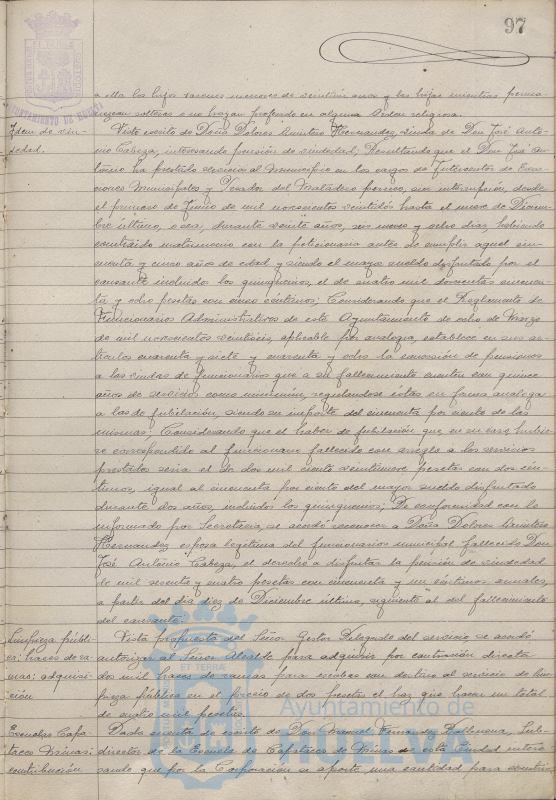 97
AYUNTAMIENTO DE HUELVA
a ella los hijos varones menores de veintiún años y las hijas mientras perma-
nezcan solteras o no hayan profesado en alguna Orden religiosa.
Idem de viu-
dedad.
Visto escrito de Doña Dolores Quintero Hernandez, viuda de Don José Anto-
nio Cabeza, interesando pensión de viudedad; Resultando que el Don José An-
tonio ha prestado servicios al Municipio en los cargos de Interventor de Exac-
ciones Municipales y Pesador del Matadero porcino, sin interrupción, desde
el primero de Junio de mil novecientos veintidós hasta el nueve de Diciem-
bre último, o sea, durante veinte años, seis meses y ocho días, habiendo
contraido matrimonio con la peticionaria antes de cumplir aquel cin-
cuenta y cinco años de edad y siendo el mayor sueldo disfrutado por el
causante incluido los quinquenios, el de cuatro mil doscientas cincuen-
ta y ocho pesetas con cinco céntimos; Considerando que el Reglamento de
Funcionarios Administrativos de este Ayuntamiento de ocho de Marzo
de mil novecientos veintiseis, aplicable por analogia, establece en sus ar-
tículos cuarenta y siete y cuarenta y ocho la concesión de pensiones
a las viudas de funcionarios que a su fallecimiento cuenten con quince
años de servicios como mínimum, regulandose éstas en forma analoga
a las de jubilación, siendo su importe del cincuenta por ciento de las
mismas; Considerando que el haber de jubilación que, en su caso, hubie-
se correspondido al funcionario fallecido con arreglo a los servicios
prestados seria el de dos mil ciento veintinueve pesetas con dos cén-
timos, igual al cincuenta por ciento del mayor sueldo disfrutado
durante dos años, incluidos los quinquenios; De conformidad con lo
informado por Secretaria, se acordó reconocer a Doña Dolores Quintero
Hernandez esposa legítima del funcionario municipal fallecido Don
José Antonio Cabeza, el derecho a disfrutar la pensión de viudedad
de mil sesenta y cuatro pesetas con cincuenta y un céntimos anuales,
a partir del día diez de Diciembre último, siguiente al del fallecimiento
del causante.
Limpieza públi-
ca: haces de ra-
mas: adquisi-
ción
Vista propuesta del Señor Gestor Delegado del servicio se acordó
autorizar al Señor Alcalde para adquirir por contratación directa
dos mil haces de ramas para escobas con destino al servicio de lim-
pieza pública en el precio de dos pesetas el haz que hacen un total
de cuatro mil pesetas.
Escuelas Capa-
taces Minas:
contribución
Dada cuenta de escrito de Don Manuel Fernandez Balbuena, Sub-
director de la Escuela de Capataces de Minas de esta Ciudad intere-
sando que por la Corporación se aporte una cantidad para contri-
Ayuntamiento de
HUELVA